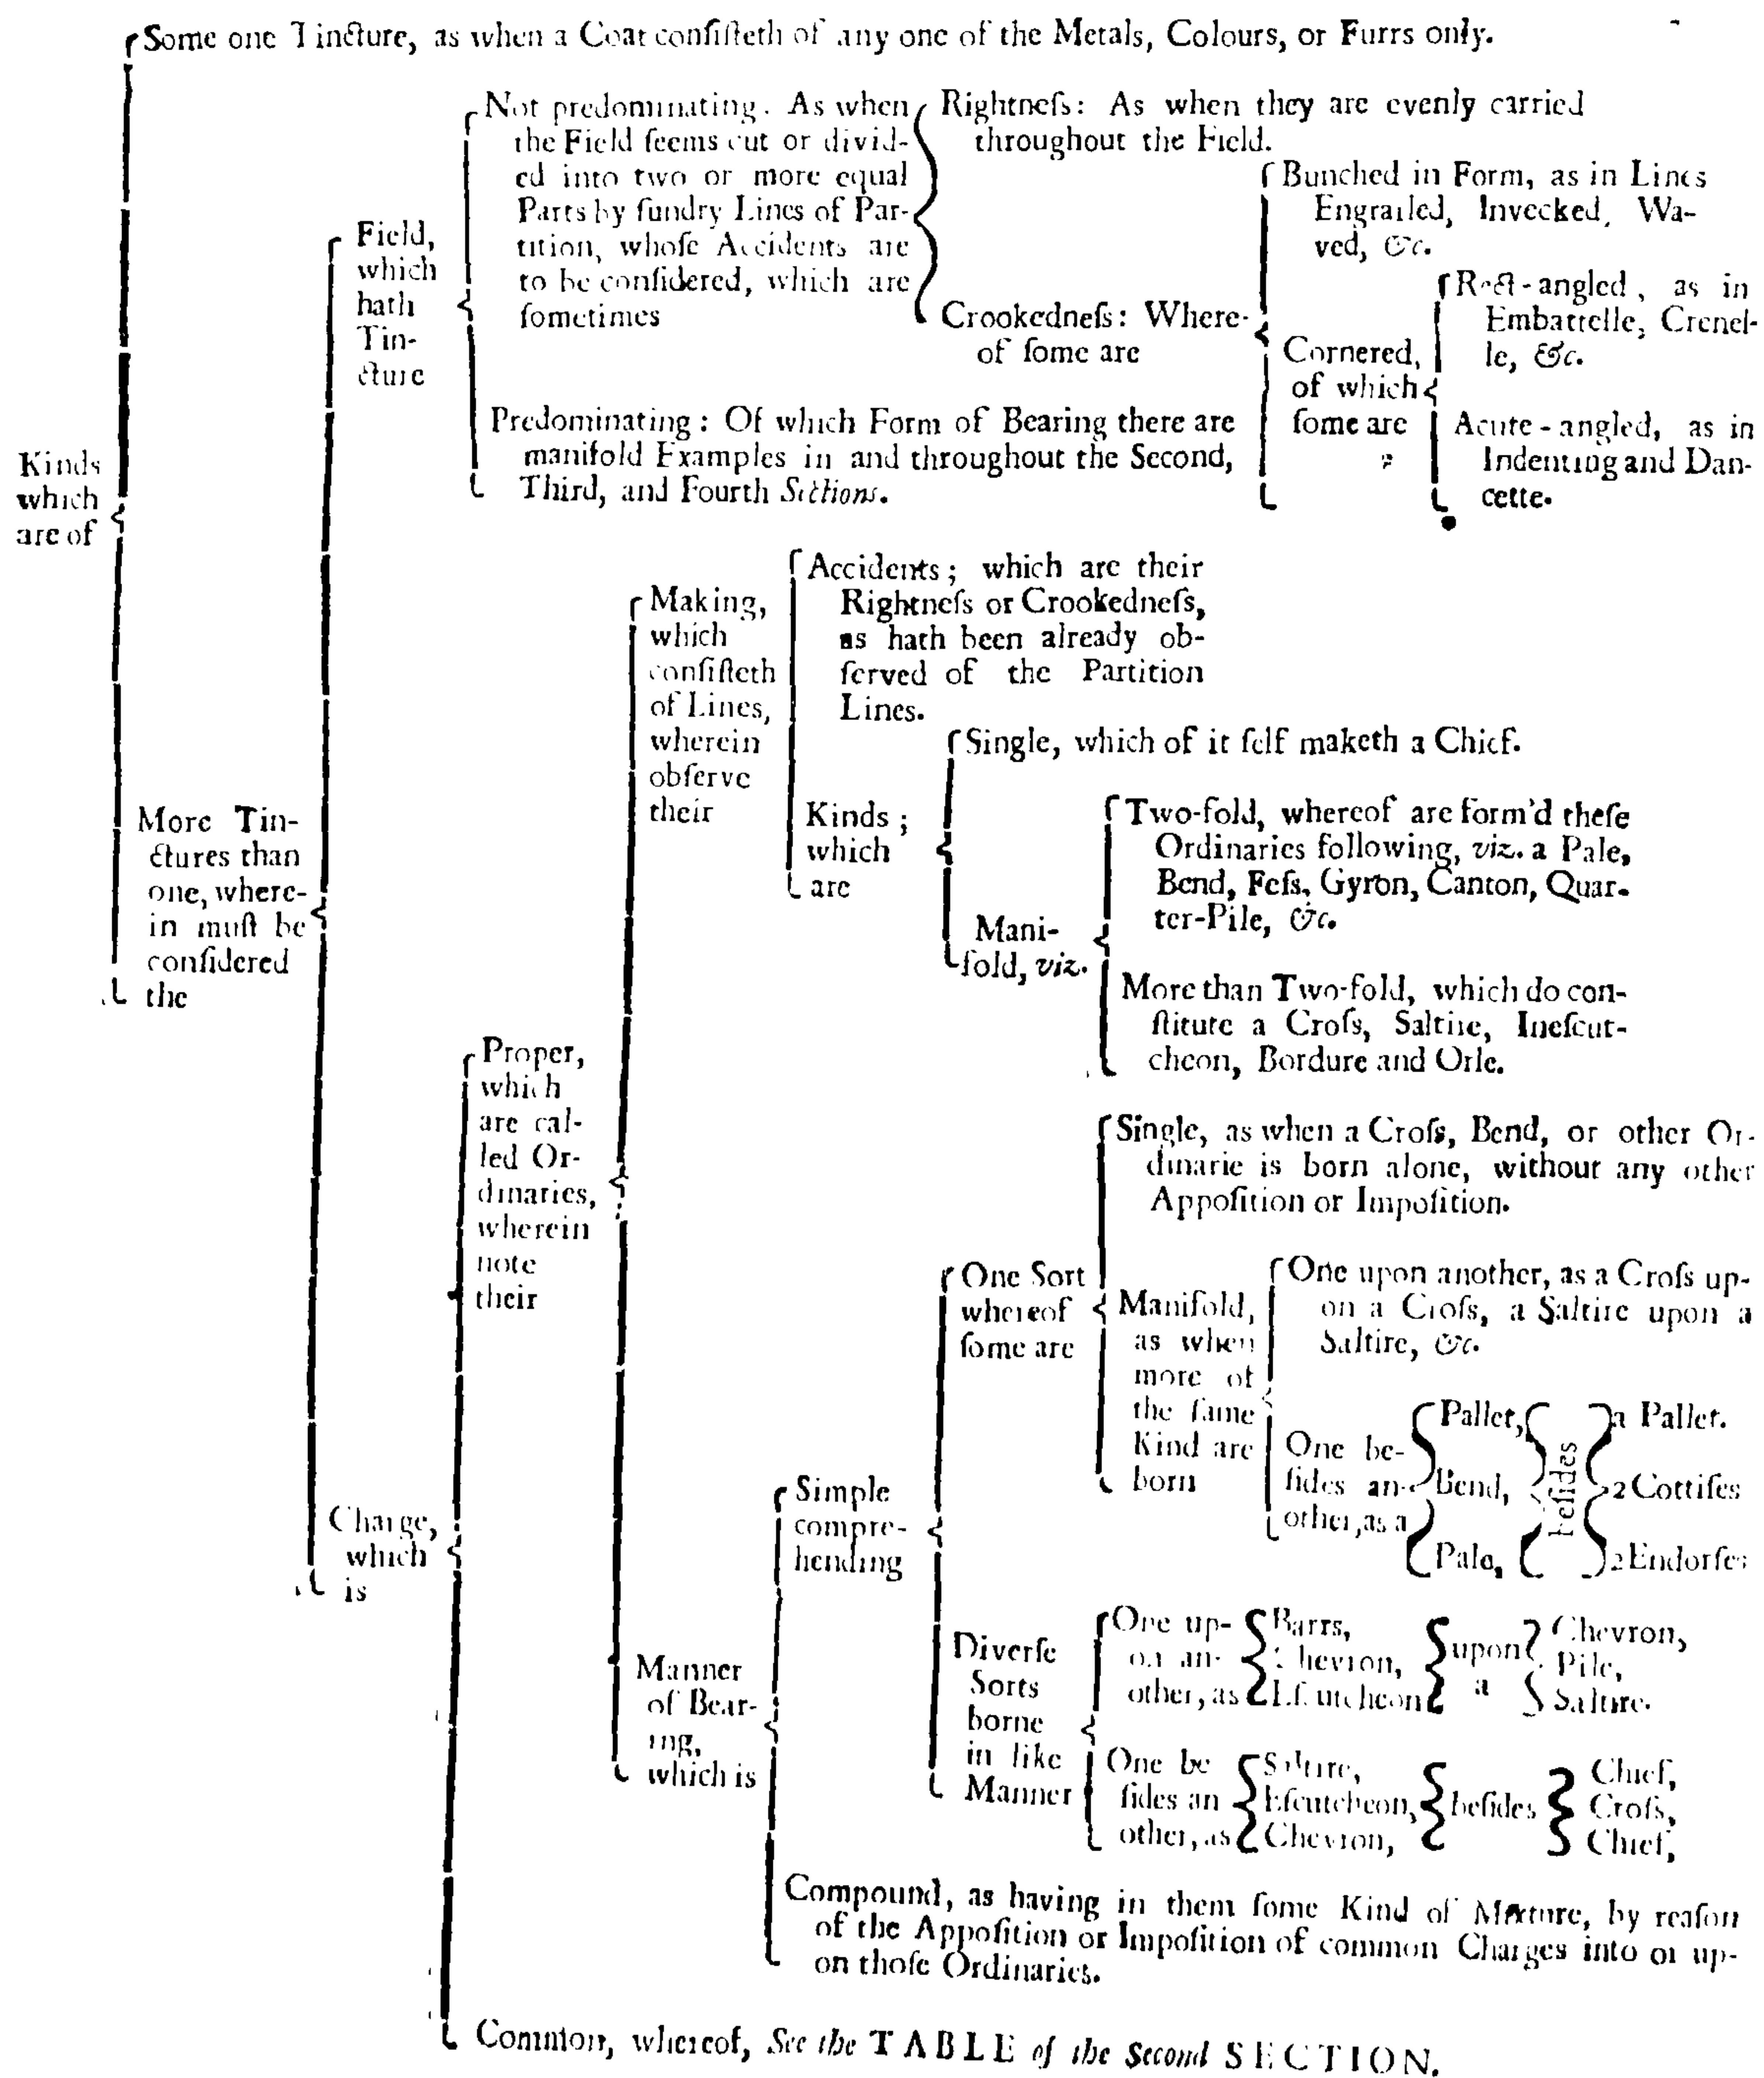 Some one Tincture, as when a Coat consiſteth of any one of the Metals, Colours, or Furrs only.
Kinds
which
are of
More Tin-
ctures than
one, where-
in muſt be
conſidered
the
Field,
which
hath
Tin-
cture
Not predominating. As when
the Field ſeems cut or divid-
ed into two or more equal
Parts by ſundry Lines of Par-
tition, whoſe Accidents are
to be conſidered, which are
ſometimes
Rightneſs: As when they are evenly carried
throughout the Field.
Crookedneſs: Where-
of ſome are
Bunched in Form, as in Lines
Engrailed, Invecked, Wa-
ved, &c.
Cornered,
of which
ſome are
Rect-angled, as in
Embattelle, Crenel-
le, &c.
Acute-angled, as in
Indenting and Dan-
cette.
Predominating: Of which Form of Bearing there are
manifold Examples in and throughout the Second,
Third, and Fourth Sections.
Charge,
which
is
Proper,
which
are cal-
led Or-
dinaries,
wherein
note
their
Making,
which
conſiſteth
of Lines,
wherein
obſerve
their
Accidents; which are their
Rightneſs or Crookedneſs,
as hath been already ob-
ſerved of the Partition
Lines.
Kinds;
which
are
Single, which of it ſelf maketh a Chief.
Mani-
fold, viz.
Two-fold, whereof are form'd theſe
Ordinaries following, viz. a Pale,
Bend, Feſs, Gyron, Canton, Quar-
ter-Pile, &c.
More than Two-fold, which do con-
ſtitute a Croſs, Saltire, Ineſcut-
cheon, Bordure and Orle.
Manner
of Bear-
ing,
which is
Simple
compre-
hending
One Sort
whereof
ſome are
Single, as when a Croſs, Bend, or other Or-
dinarie is born alone, without any other
Appoſition or Impoſition.
Manifold,
as when
more of
the ſame
Kind are
born
One upon another, as a Croſs up-
on a Croſs, a Saltire upon a
Saltire, &c.
One be-
ſides an-
other, as a
Pallet,
Bend,
Pale,
beſides
a Pallet.
2 Cottiſes
2 Endorſes
Diverſe
Sorts
borne
in like
Manner
One up-
on an-
other, as
Barrs,
Chevron,
Eſcutcheon
upon
a
Chevron,
Pile,
Saltire.
One be
ſides an
other, as
Saltire,
Eſcutcheon,
Chevron,
beſides
Chief,
Croſs,
Chief,
Compound, as having in them ſome Kind of Mixture, by reaſon
of the Appoſition or Impoſition of common Charges into or up-
on thoſe Ordinaries.
Common, whereof, See the TABLE of the Second SECTION.